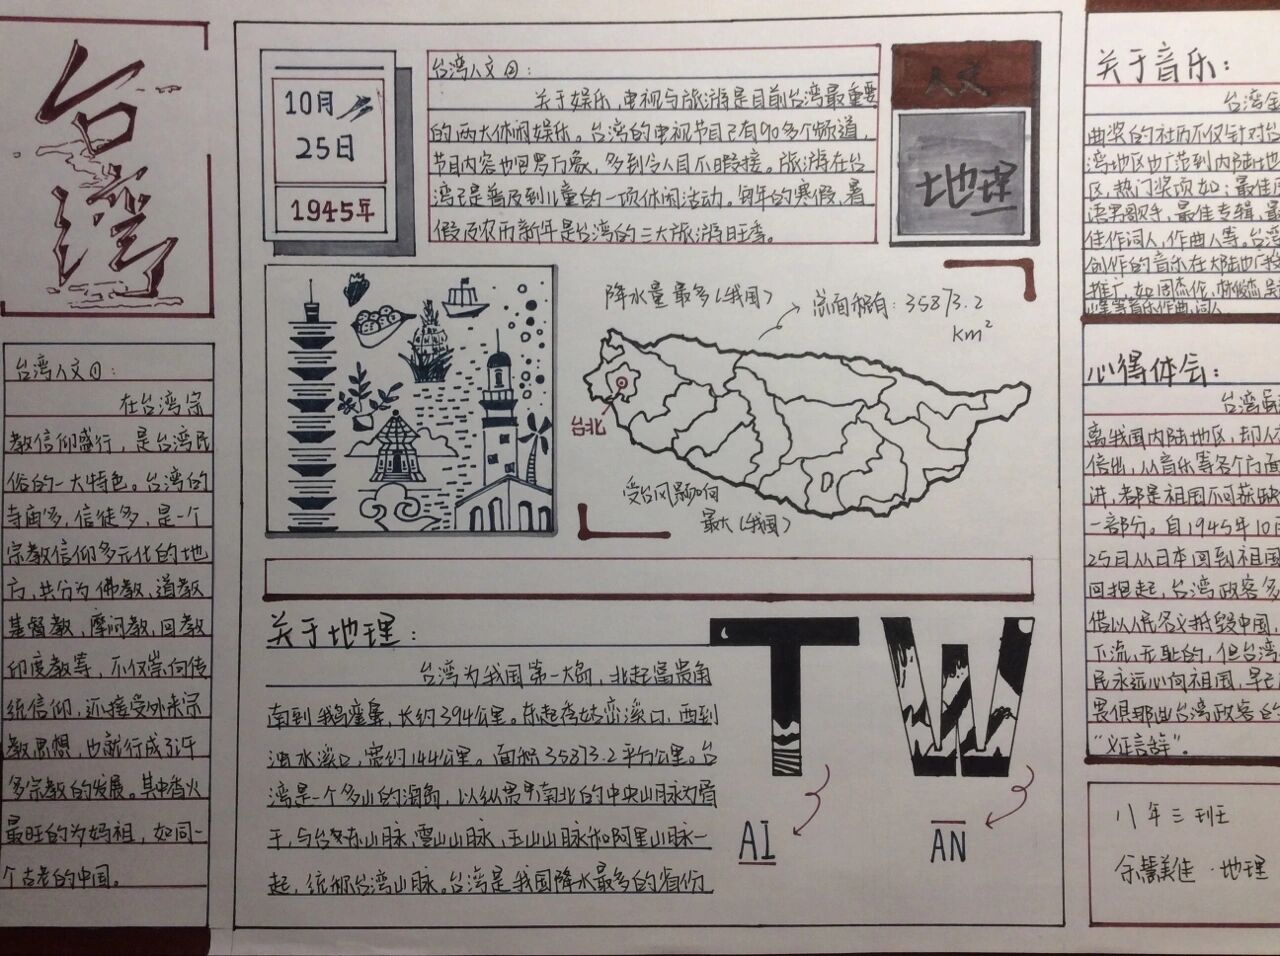 台湾
台湾人文①:
在台湾宗
教信仰盛行，是台湾民
俗的一大特色。台湾的
寺庙多，信徒多，是一个
宗教信仰多元化的地
方，共分为佛教，道教
基督教，摩门教，回教
印度教等，不仅崇尚传
统信仰，还接受外来宗
教思想，也就行成了许
多宗教的发展。其中香火
最旺的为妈祖，如同一
个古老的中国。
10月
25日
1945年
台湾人文②:
关于娱乐，电视与旅游是目前台湾最重要
的两大休闲娱乐。台湾的电视节目已有90多个频道，
节目内容也包罗万象，多到令人目不暇接。旅游在台
湾已是普及到儿童的一项休闲活动。每年的寒假，暑
假及农历新年是台湾的三大旅游旺季。
人文
地理
降水量最多(我国)
总面积: 35873.2
km²
台北
受台风影响
最大(我国)
关于地理:
台湾为我国第一大岛，北起富贵角
南到鹅銮鼻，长约394公里。东起秀姑峦溪口，西到
浊水溪口，宽约144公里。面积35873.2平方公里。台
湾是一个多山的海岛，以纵贯南北的中央山脉为骨
干，与台东山脉，雪山山脉，玉山山脉和阿里山脉一
起，统称台湾山脉。台湾是我国降水最多的省份
T W
AI AN
关于音乐:
台湾金
曲奖的社历不仅针对台
湾地区也广范到内陆地
区，热门奖项如：最佳国
语男歌手，最佳专辑，最
佳作词人，作曲人等。台湾
创作的音乐在大陆也广
推广，如周杰伦，林俊杰是
等音乐作曲，词人
心得体会:
台湾虽
离我国内陆地区，却人
信出，从音乐等各个方面
讲，都是祖国不可获缺
一部分。自1945年10月
25日从日本回到祖国
回抱起，台湾政客多
借以人民名义抵毁中国，
下流，无耻的，但台湾
民永远心向祖国，早已
畏惧那些台湾政客的
“义正言辞”。
八年三班
余慧美佳·地理